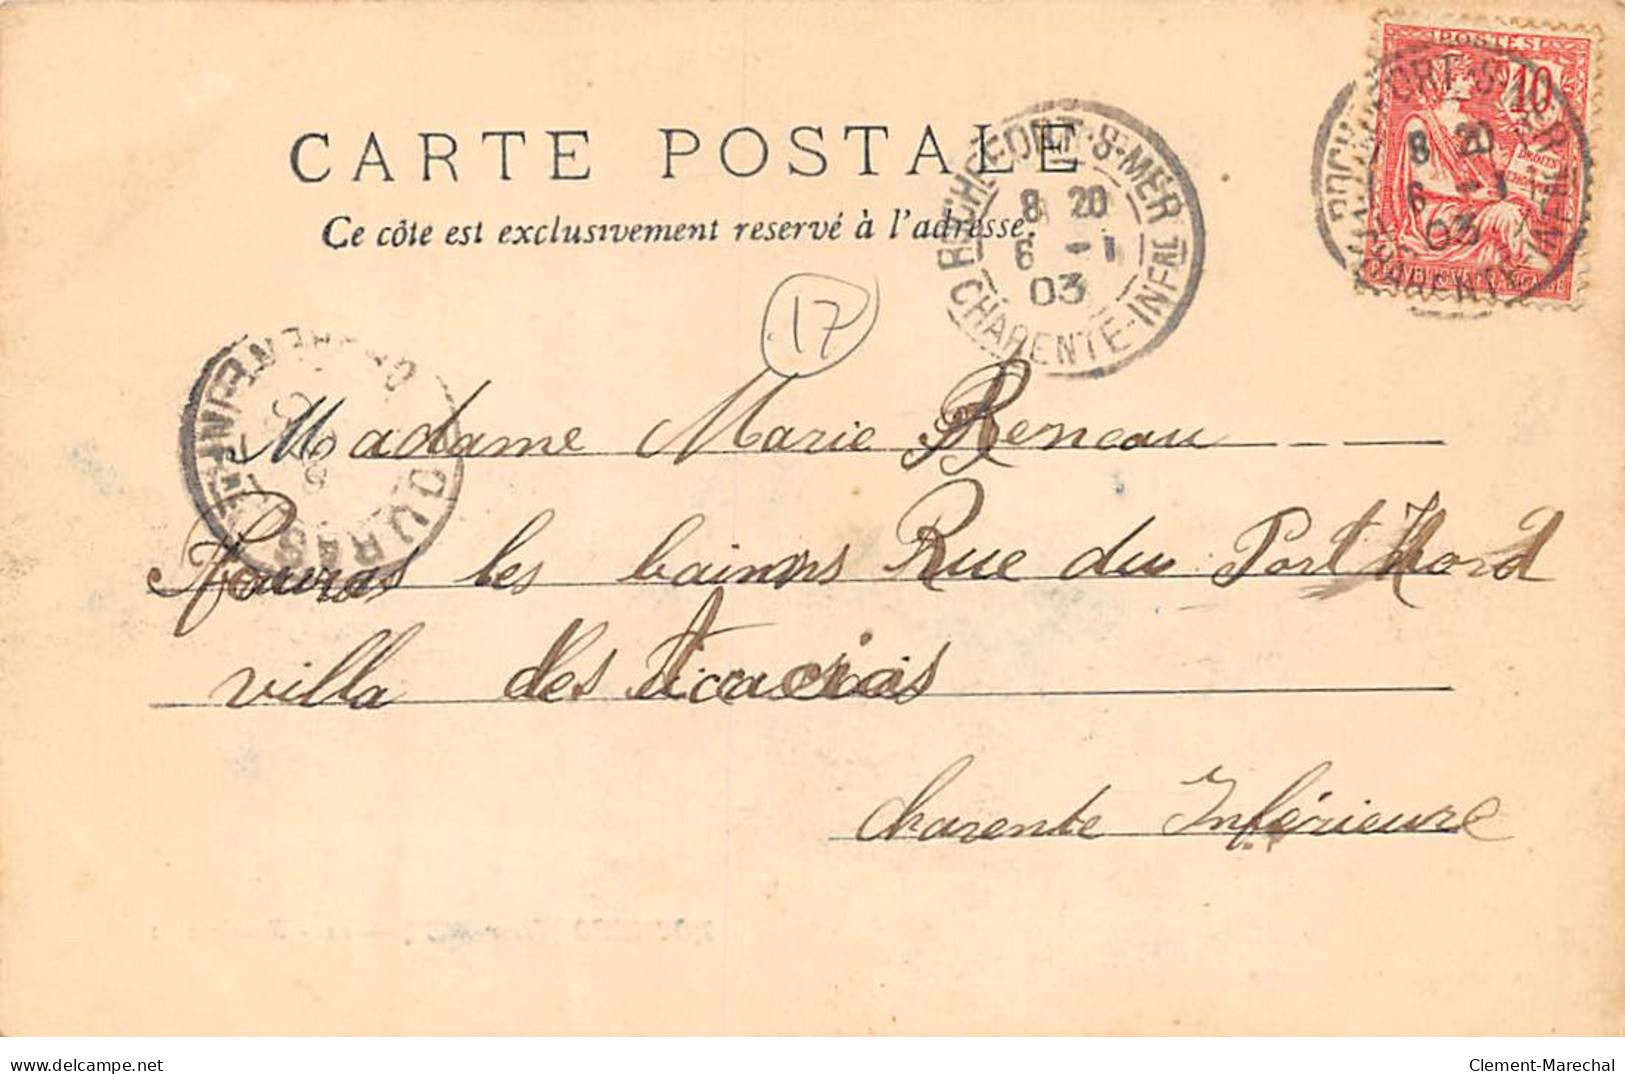 CARTE POSTALE
Ce côte est exclusivement reservé à l'adresse.
POSTES
10
DROITS
ROCHEFORT-S-MER
8 20
6 -1
03
CHARENTE-INFRE
ROCHEFORT-S-MER
8 20
6 -1
03
CHARENTE-INFRE
17
FOURAS
Madame Marie Reneau
Fouras les bains Rue du Port Nord
villa des Accacias
Charente Inférieure
delcampe.net
Clement-Marechal